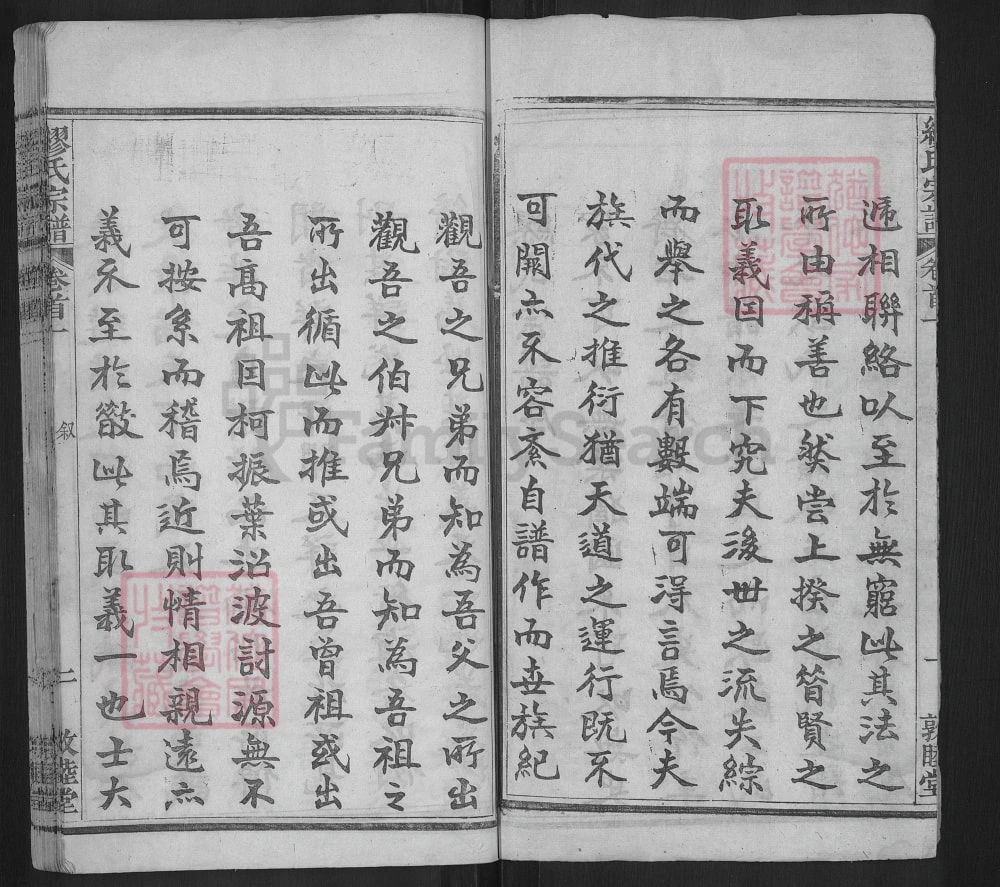 繆氏宗譜
卷首一
一
敦睦堂
遞相聯絡以至於無窮此其法之
所由稱善也然嘗上揆之簪賢之
取義因而下究夫後世之流失綜
而舉之各有數端可得言焉今夫
族代之推衍猶天道之運行既不
可闕亦不容紊自譜作而世族紀
觀吾之兄弟而知為吾父之所出
觀吾之伯叔兄弟而知為吾祖之
所出循此而推或出吾曾祖或出
吾高祖因柯振葉沿波討源無不
可按系而稽焉近則情相親遠亦
義不至於散此其取義一也士大
繆氏宗譜
卷首一
叙
二
敦睦堂
FamilySearch